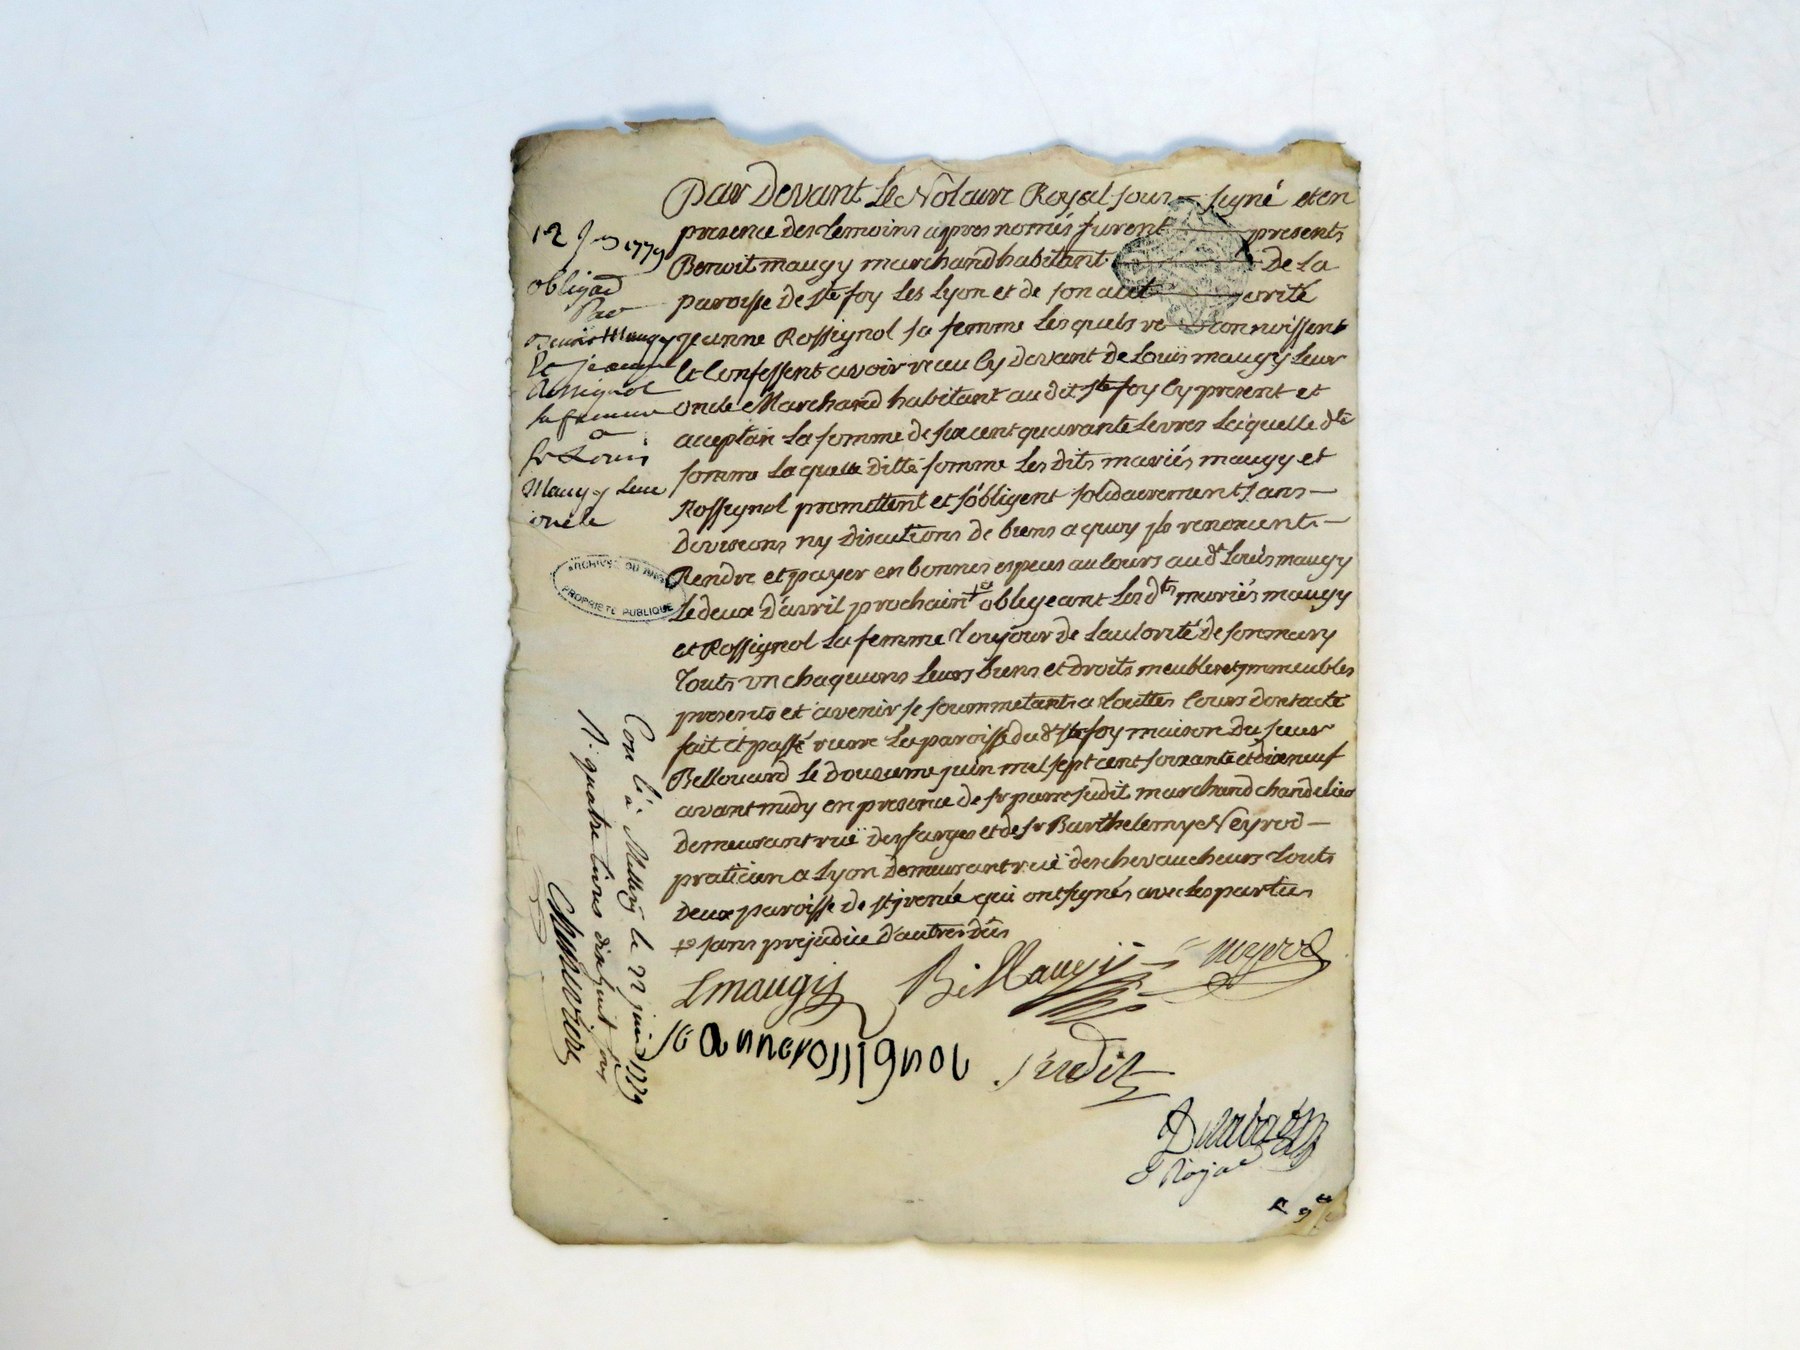 Par Devant Le Notaire Royal sous signé et en
presence des temoins apres només furent presents
Benoit maugy marchand habitant De La
paroisse de Ste foy Les Lyon et de son auct orité
jeanne Rossignol sa femme Lesquels re connoissent
et Confessent avoir reçu Cy devant de Louis maugy Leur
oncle Marchand habitant audit Ste foy Cy present et
acceptan La somme de six cent quarante Livres Laquelle dte
somme Laquelle ditte somme Les dits mariés maugy et
Rossignol promettent et s'obligent solidairement sans
divisions ny discutions de biens a quoy ils renoncent
Rendre et payer en bonnes especes au Cours au dt Louis maugy
Le deux d'avril prochain obligeant Les dts mariés maugy
et Rossignol La femme Toujour de Lautorité de son mary
Touts un chaquuns Leurs biens et droits meubles et immeubles
presents et avenir se soummetants a touttes Cours dont acte
fait et passé riere La paroisse du dt Ste foy maison du sieur
Bellouard Le dousieme juin mil sept cent soixante et dixneuf
avant midy en presence de sr pierre judit marchand chandelier
demeurant ruë des farges et de sr Barthelemy Neyrod
praticien a Lyon demeurant ruë des chevaucheurs touts
deux paroisse de st jrenée qui ont signés avec Les parties
sans prejudice d'autres dûs
12 1779
obligaon
Par
Benoit Maugy
Et jeanne
Rossignol
sa femme
a
sr Louis
Maugy leur
oncle
ARCHIVES DU RHONE
PROPRIETE PUBLIQUE
Con lé à le 22 juin 1779
R. quatre livres dixhuit sous
L maugy
B. Maugy
Neyrod
jeanne rossignol
judit
N Royal